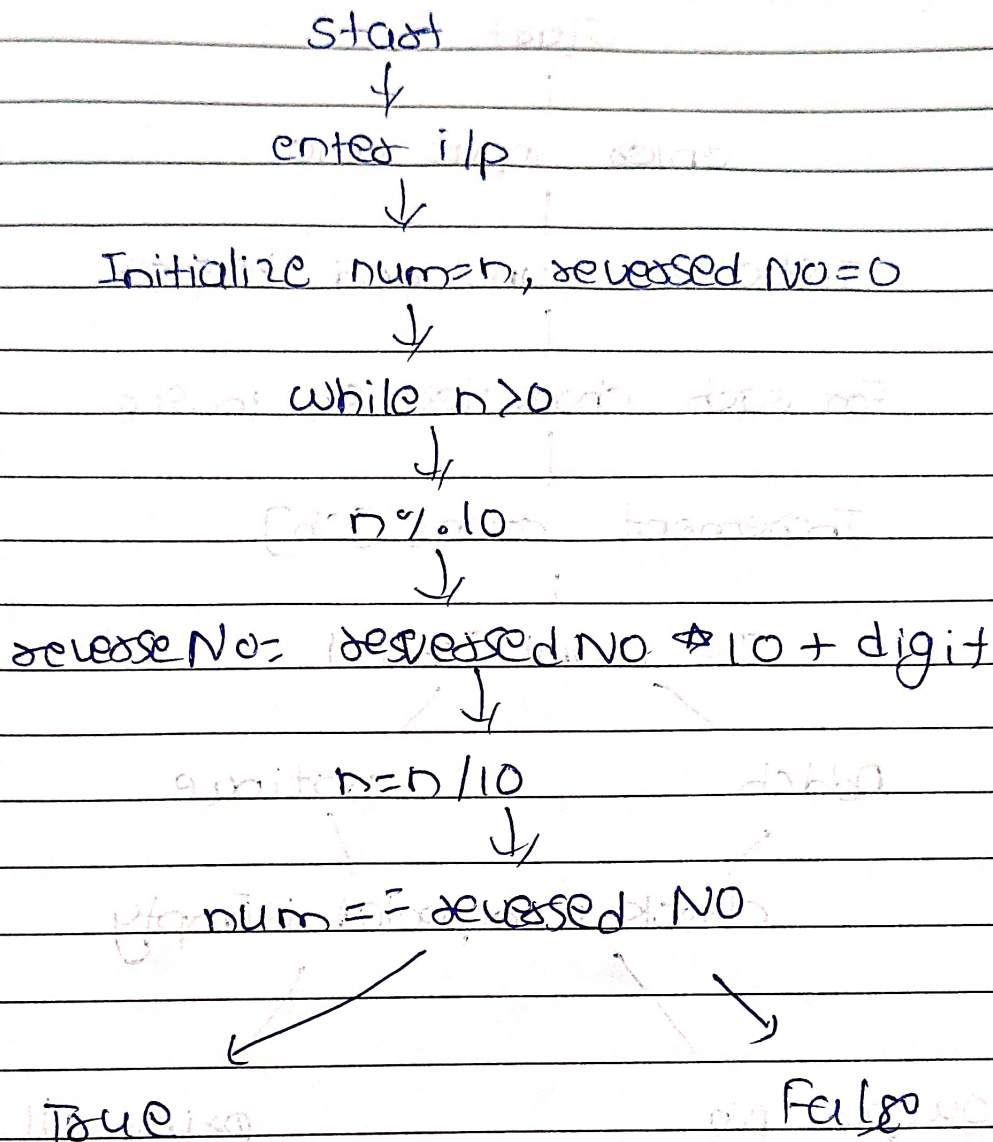 Start
enter i/p
Initialize num=n, reversed NO=0
while n>0
n%10
reverse No= reversed NO * 10 + digit
n=n/10
num == reversed NO
True False